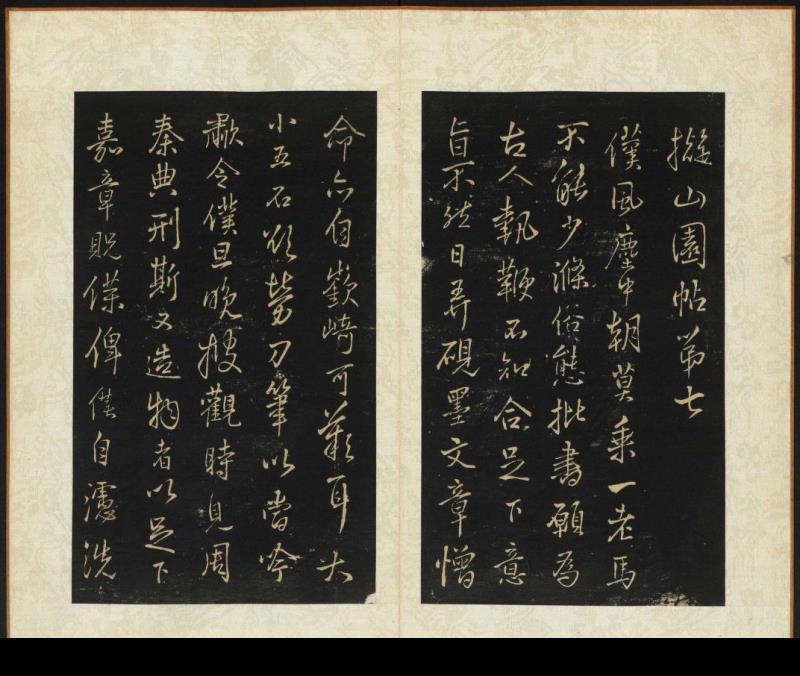 擬山園帖第七
僕風塵中朝莫乘一老馬
不能少滌俗態批書願為
古人執鞭不知合足下意
旨不然日弄硯墨文章憎
命亦自嶔崎可歎耳大
小五石欲勞刀筆以當吟
歗令僕旦晚披觀時見周
秦典刑斯又造物者以足下
嘉章貺僕俾僕自濾洗